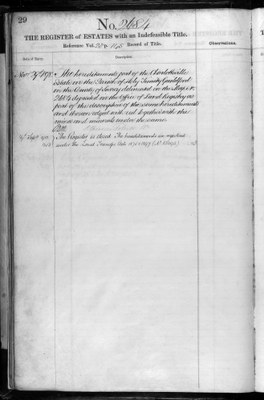 29
No. 2684
THE REGISTER of ESTATES with an Indefeasible Title.
Reference Vol. Record of Title.
Observations.
Date of Entry.
Description.
The hereditaments part of the Charlotteville
Estate in the Parish of Holy Trinity Guildford
in the County of Surrey delineated on the Map No.
2684 deposited in the Office of Land Registry as
part of the description of the same hereditaments
and thereon edged with red together with the
mines and minerals under the same
The Register is closed. The hereditaments are registered
under the Land Transfer Act